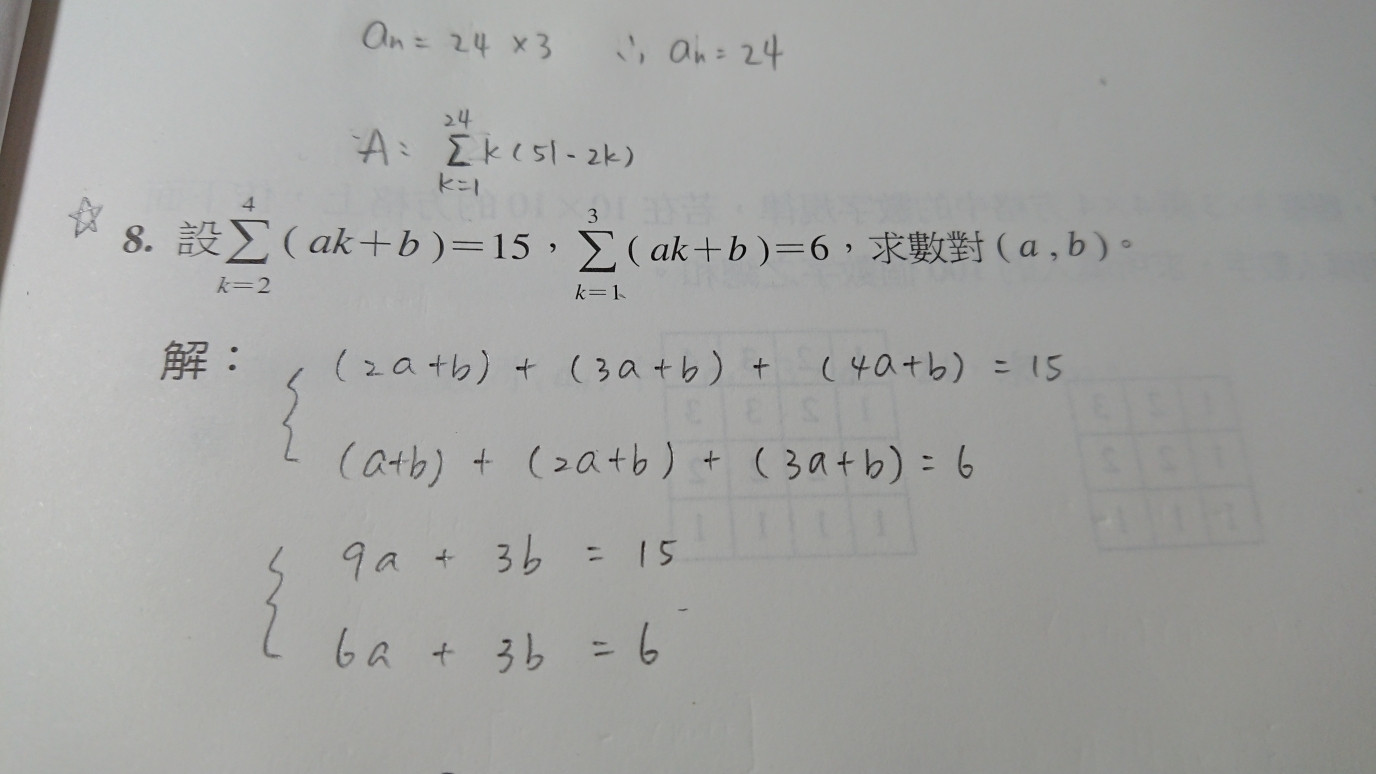 an = 24 × 3 ∴ an = 24
A: 24 Σ k=1 k(51-2k)
☆ 8. 設 4 Σ k=2 (ak+b)=15，3 Σ k=1 (ak+b)=6，求數對(a,b)。
解： { (2a+b) + (3a+b) + (4a+b) = 15
(a+b) + (2a+b) + (3a+b) = 6
{ 9a + 3b = 15
6a + 3b = 6